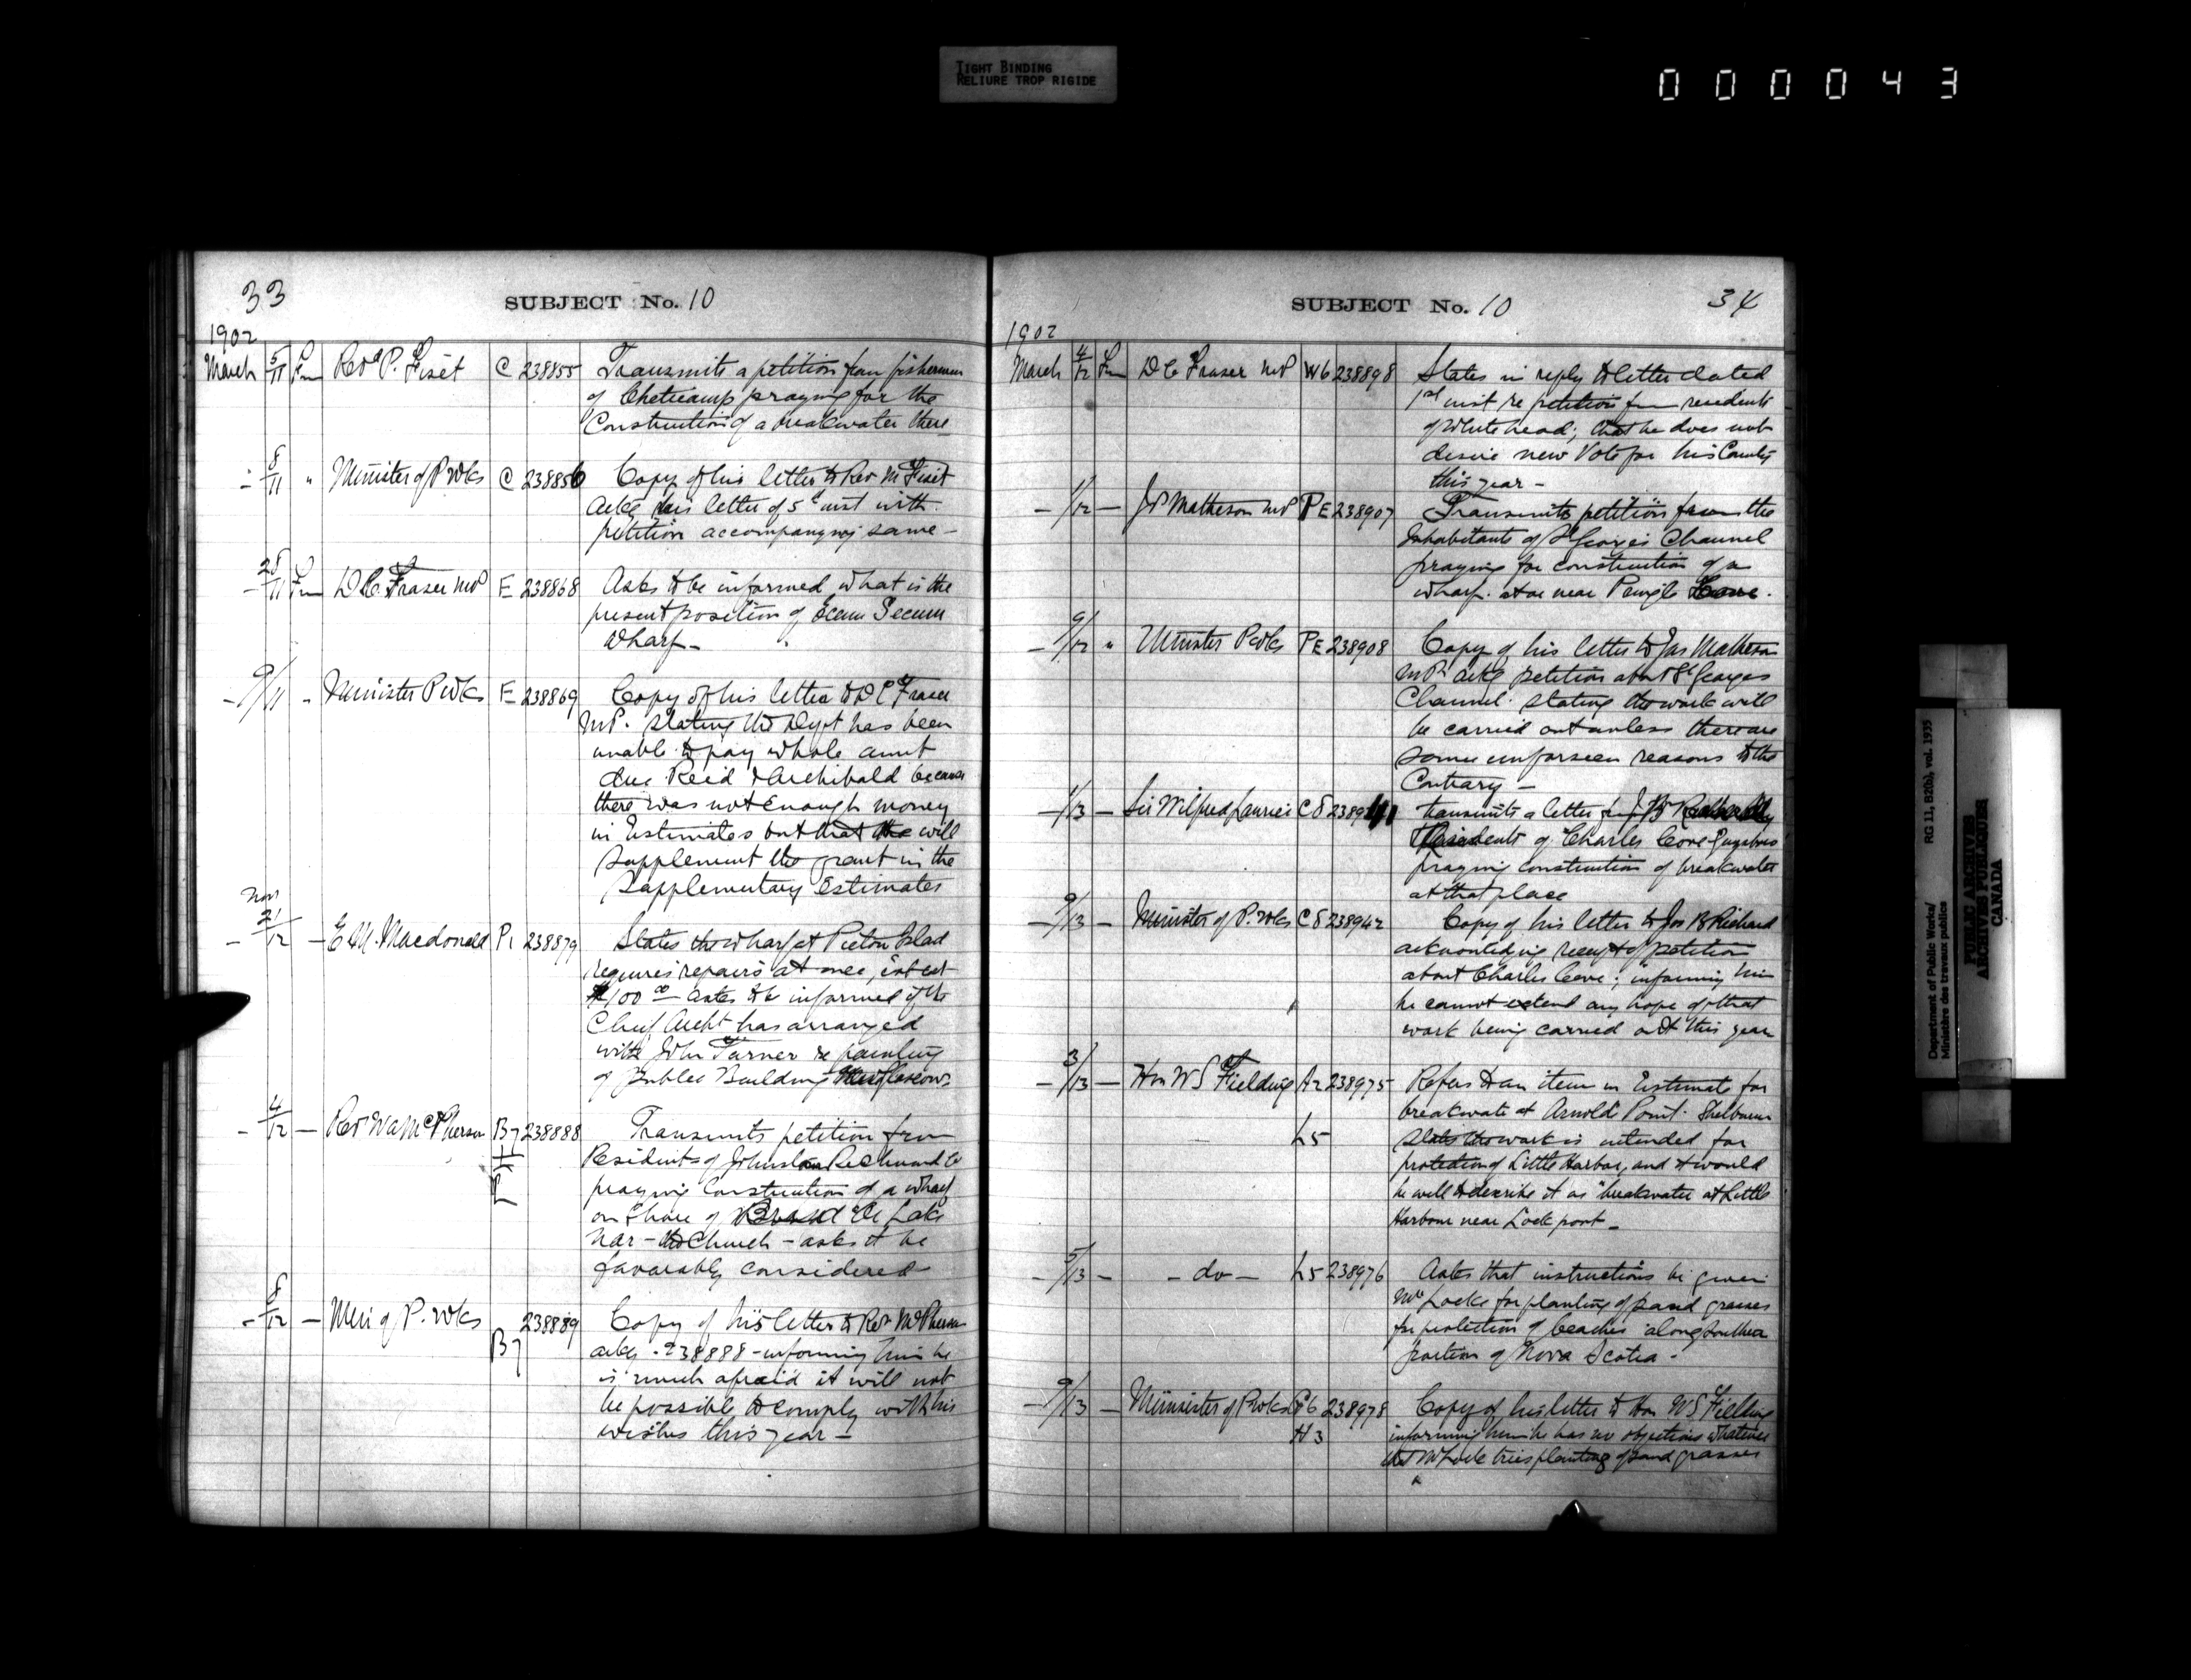 TIGHT BINDING
RELIURE TROP RIGIDE
000043
33
SUBJECT No. 10
1902
March 5/11 Fm Revd P. Fiset C 238855 Transmits a petition from fishermen
of Cheticamp praying for the
Construction of a breakwater there
- 8/11 " Minister of P Wks C 238856 Copy of his letter to Rev M Fiset
ackg his letter of 5th inst with
petition accompanying same -
- 28/11 Fm D C. Fraser MP E 238868 Asks to be informed what is the
present position of Ecum Secum
Wharf -
- 9/11 - Minister P Wks E 238869 Copy of his letter to D C Fraser
MP. stating the Dept has been
unable to pay whole amnt
due Reid & Archibald because
there was not enough money
in Estimates but that will
supplement the grant in the
Supplementary Estimates
Nov
- 21/12 - E M. Macdonald P1 238879 States the wharf at Pictou Island
requires repairs at once, cost est
$100 00 asks to be informed if the
Chief Archt has arranged
with John Turner re painting
of Public Building New Glasgow
- 4/12 - Rev WA McPherson B7 238888 Transmits petition from
Residents of Johnstown Richmond Co
praying Construction of a wharf
on Shore of Brasd'Or Lake
near - the Church - asks it be
favorably considered
- 8/12 - Min of P. Wks B7 238889 Copy of his letter to Rev McPherson
ackg. 238888 - informing him he
is much afraid it will not
be possible to comply with his
wishes this year -
SUBJECT No. 10
34
1902
March 4/12 Fm D C Fraser MP W6 238898 States in reply to letter dated
1st inst re petition from residents
of Whitehead; that he does not
desire new Vote for his County
this year -
- 1/12 - Matheson MP PE 238907 Transmits petition from the
Inhabitants of St Georges Channel
praying for construction of a
wharf at or near Pringle
- 9/12 " Minister P Wks PE 238908 Copy of his letter to Jas Matheson
MP ackg petition about St Georges
Channel. stating the work will
be carried out unless there are
some unforseen reasons to the
Contrary -
- 1/13 - Sir Wilfred Laurier C8 transmits a letter from J B
of Charles Cove Guysboro
praying construction of breakwater
at that place
- 9/13 - Minister of P. Wks C8 238942 Copy of his letter to Jos B Richard
acknowledging receipt of petition
about Charles Cove; informing him
he cannot extend any hope of that
work being carried out this year
- 3/13 - Hon W S Fielding A2 238975 Refers to an item in Estimate for
breakwater at Arnold Point. Shelburne
L5 States the work is intended for
protection of Little Harbor, and it would
be well to describe it as "breakwater at Little
Harbour near Lockport -
- 5/13 - - do - L5 238976 Asks that instructions be given
Mr Locke for planting of sand grasses
for protection of beaches along southern
portion of Nova Scotia -
- 9/13 - Minister of P Wks 238978 Copy of his letter to Hon W S Fielding
H3 informing him he has no objections whatever
planting of sand grasses
Department of Public Works/ RG 11, B2(b), vol. 1935
Ministère des travaux publics
PUBLIC ARCHIVES
ARCHIVES PUBLIQUES
CANADA